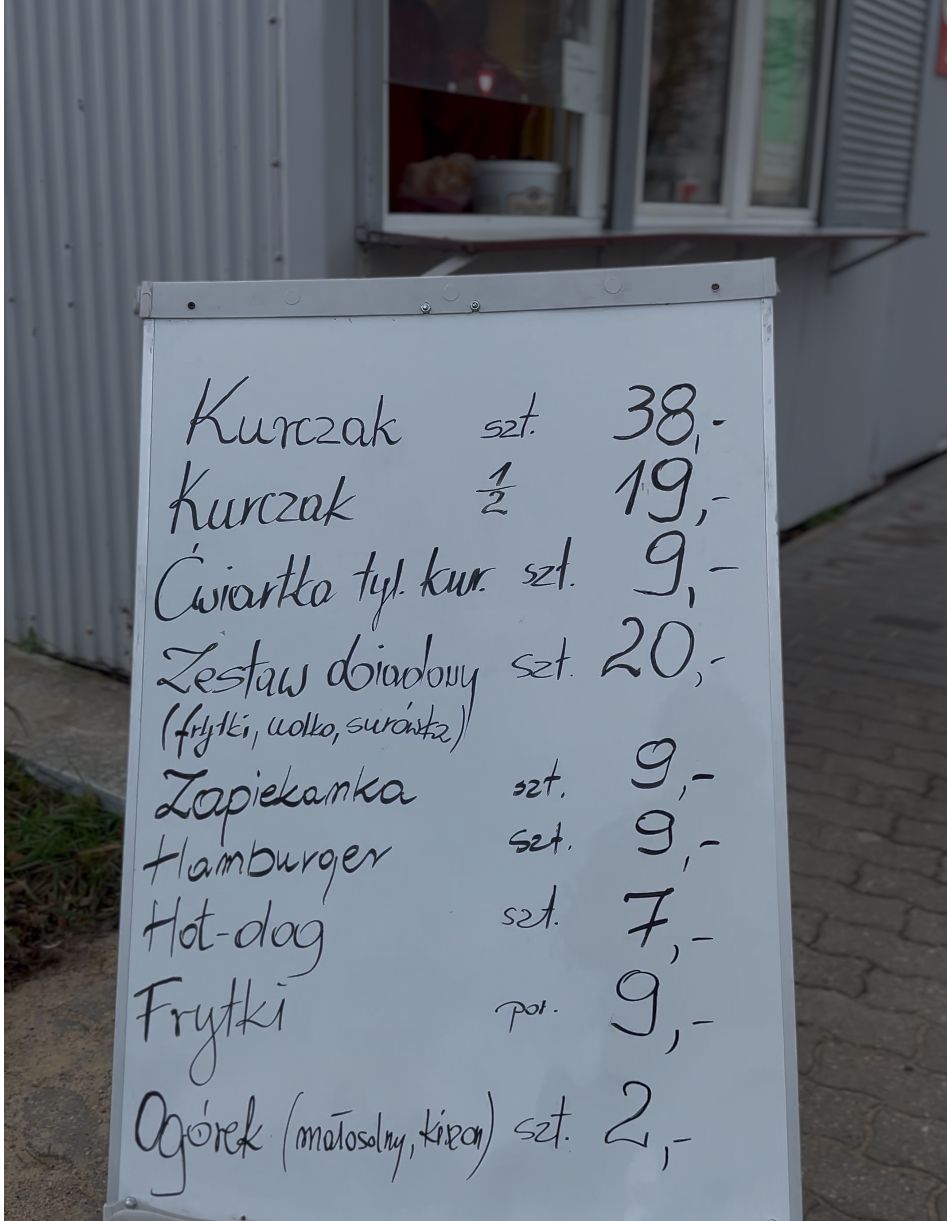 Kurczak szt. 38,-
Kurczak 1/2 19,-
Ćwiartka tyl. kur. szt. 9,-
Zestaw obiadowy szt. 20,-
(frytki, udko, surówka)
Zapiekanka szt. 9,-
Hamburger szt. 9,-
Hot-dog szt. 7,-
Frytki por. 9,-
Ogórek (małosolny, kiszon) szt. 2,-